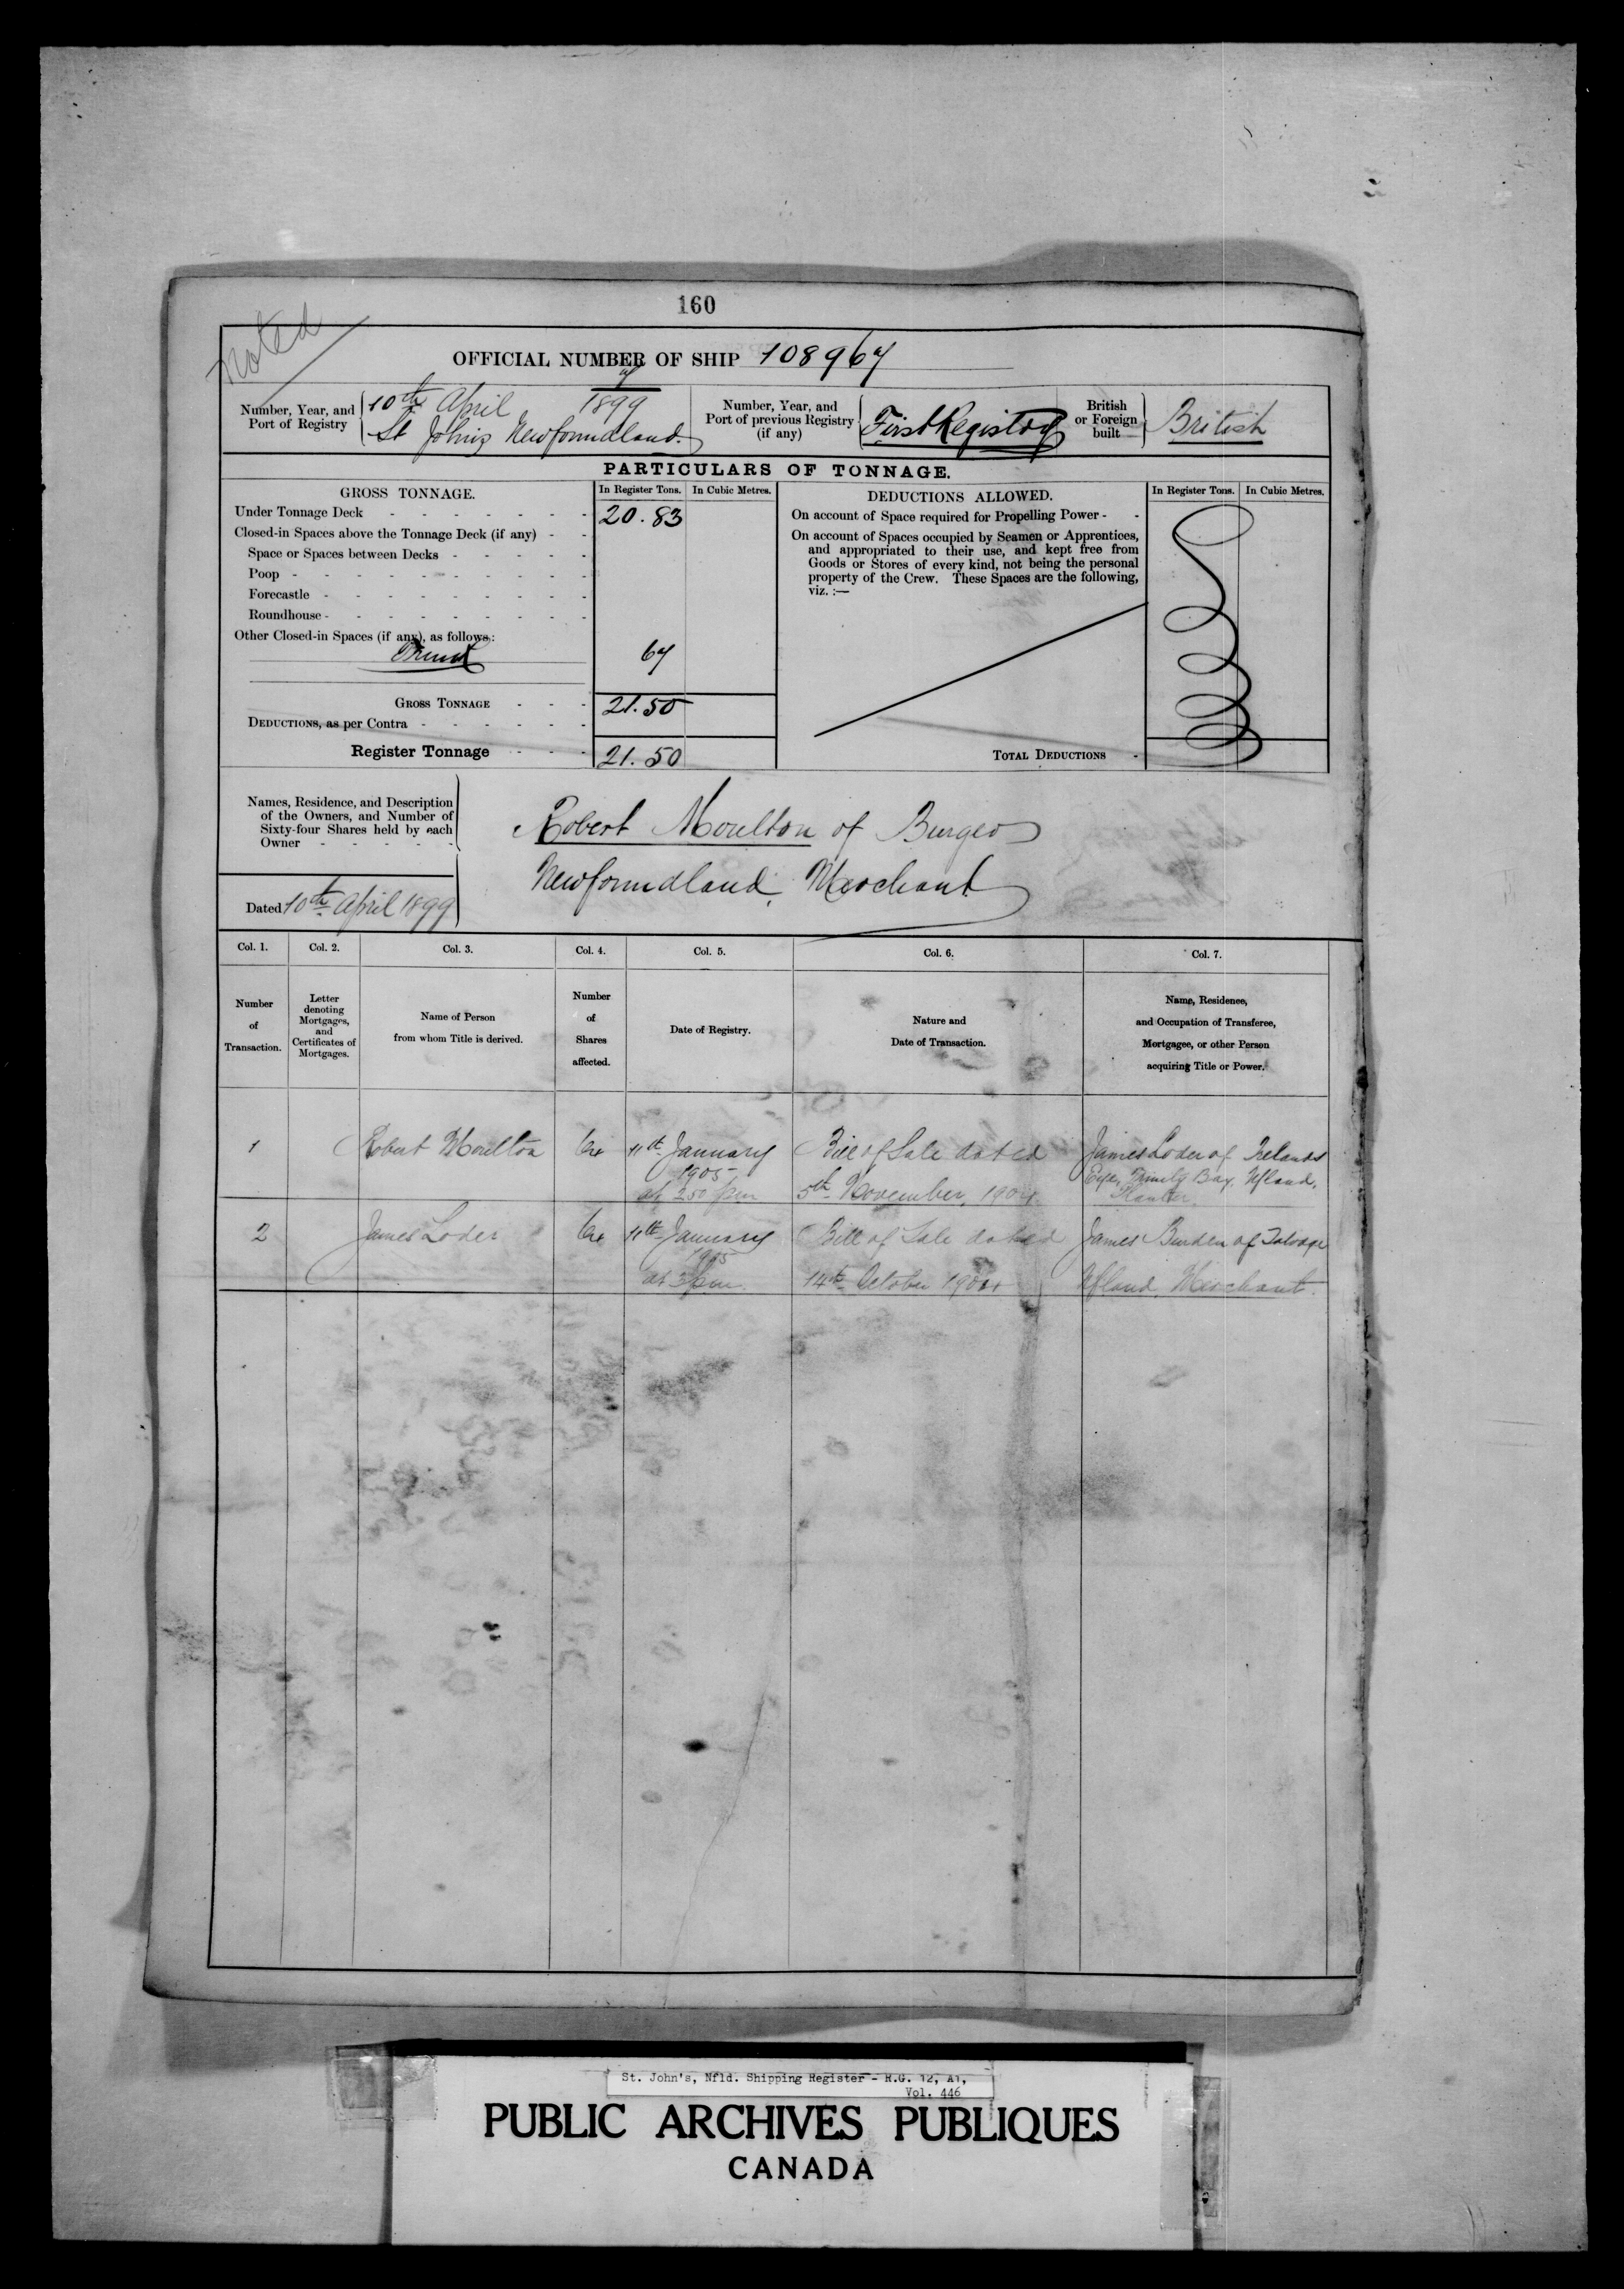 160
Noted
OFFICIAL NUMBER OF SHIP 108967
Number, Year, and Port of Registry
10th April 1899
St Johns Newfoundland.
Number, Year, and Port of previous Registry (if any)
First Registry
British or Foreign built
British
PARTICULARS OF TONNAGE.
GROSS TONNAGE.
In Register Tons. In Cubic Metres.
Under Tonnage Deck 20.83
Closed-in Spaces above the Tonnage Deck (if any)
Space or Spaces between Decks
Poop
Forecastle
Roundhouse
Other Closed-in Spaces (if any), as follows:
Trunk 67
GROSS TONNAGE 21.50
DEDUCTIONS, as per Contra
Register Tonnage 21.50
DEDUCTIONS ALLOWED.
In Register Tons. In Cubic Metres.
On account of Space required for Propelling Power
On account of Spaces occupied by Seamen or Apprentices,
and appropriated to their use, and kept free from
Goods or Stores of every kind, not being the personal
property of the Crew. These Spaces are the following,
viz. :—
TOTAL DEDUCTIONS
Names, Residence, and Description
of the Owners, and Number of
Sixty-four Shares held by each
Owner
Dated 10th April 1899
Robert Moulton of Burgeo
Newfoundland, Merchant
Col. 1. Col. 2. Col. 3. Col. 4. Col. 5. Col. 6. Col. 7.
Number of Transaction.
Letter denoting Mortgages, and Certificates of Mortgages.
Name of Person from whom Title is derived.
Number of Shares affected.
Date of Registry.
Nature and Date of Transaction.
Name, Residence, and Occupation of Transferee, Mortgagee, or other Person acquiring Title or Power.
1 Robert Moulton 64 11th January 1905 at 2.50 pm Bill of Sale dated 5th November, 1904 James Loder of Irelands Eye, Trinity Bay, Nfland, Planter
2 James Loder 64 11th January 1905 at 3 pm. Bill of Sale dated 14th October 1904 James Burden of Nfland, Merchant.
St. John's, Nfld. Shipping Register - R.G. 12, A1,
Vol. 446
PUBLIC ARCHIVES PUBLIQUES
CANADA